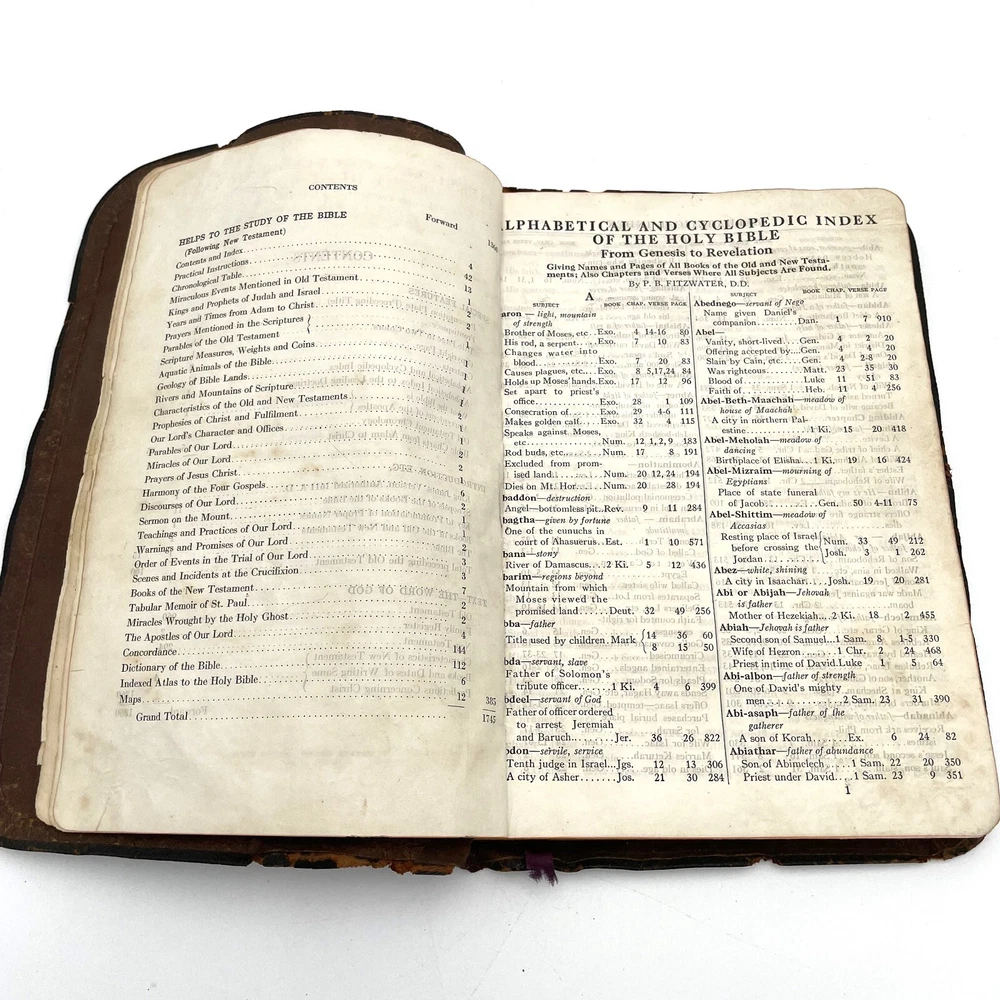 CONTENTS
HELPS TO THE STUDY OF THE BIBLE Forward
(Following New Testament)
Contents and Index
Practical Instructions 4
Chronological Table 42
Miraculous Events Mentioned in Old Testament 13
Kings and Prophets of Judah and Israel 1
Years and Times from Adam to Christ 2
Prayers Mentioned in the Scriptures
Parables of the Old Testament
Scripture Measures, Weights and Coins
Aquatic Animals of the Bible
Geology of Bible Lands
Rivers and Mountains of Scripture
Characteristics of the Old and New Testaments
Prophesies of Christ and Fulfilment
Our Lord's Character and Offices
Parables of Our Lord
Miracles of Our Lord
Prayers of Jesus Christ
Harmony of the Four Gospels 6
Discourses of Our Lord 2
Sermon on the Mount 1
Teachings and Practices of Our Lord 1
Warnings and Promises of Our Lord 2
Order of Events in the Trial of Our Lord 3
Scenes and Incidents at the Crucifixion 3
Books of the New Testament 7
Tabular Memoir of St. Paul 2
Miracles Wrought by the Holy Ghost 2
The Apostles of Our Lord 4
Concordance 144
Dictionary of the Bible 112
Indexed Atlas to the Holy Bible 6
Maps 12 385
Grand Total 1745
LPHABETICAL AND CYCLOPEDIC INDEX
OF THE HOLY BIBLE
From Genesis to Revelation
Giving Names and Pages of All Books of the Old and New Testa-
ments; Also Chapters and Verses Where All Subjects Are Found.
By P. B. FITZWATER, D.D.
A
SUBJECT BOOK CHAP. VERSE PAGE
aron—light, mountain
of strength
Brother of Moses, etc. Exo. 4 14-16 80
His rod, a serpent....Exo. 7 10 83
Changes water into
blood..........Exo. 7 20 83
Causes plagues, etc...Exo. 8 5,17,24 84
Holds up Moses' hands.Exo. 17 12 96
Set apart to priest's
office..........Exo. 28 1 109
Consecration of......Exo. 29 4-6 111
Makes golden calf....Exo. 32 4 115
Speaks against Moses,
etc..........Num. 12 1, 2, 9 183
Rod buds, etc......Num. 17 8 191
Excluded from prom-
ised land........Num. 20 12, 24 194
Dies on Mt. Hor....Num. 20 28 194
baddon—destruction
Angel—bottomless pit..Rev. 9 11 284
bagtha—given by fortune
One of the eunuchs in
court of Ahasuerus..Est. 1 10 571
bana—stony
River of Damascus...2 Ki. 5 12 436
barim—regions beyond
Mountain from which
Moses viewed the
promised land.....Deut. 32 49 256
bba—father
Title used by children.Mark {14 36 60
8 15 50
bda—servant, slave
Father of Solomon's
tribute officer......1 Ki. 4 6 399
bdeel—servant of God
Father of officer ordered
to arrest Jeremiah
and Baruch.......Jer. 36 26 822
bdon—servile, service
Tenth judge in Israel...Jgs. 12 13 306
A city of Asher.......Jos. 21 30 284
SUBJECT BOOK CHAP. VERSE PAGE
Abednego—servant of Nego
Name given Daniel's
companion........Dan. 1 7 910
Abel—
Vanity, short-lived....Gen. 4 2 20
Offering accepted by...Gen. 4 4 20
Slain by Cain, etc.....Gen. 4 2-8 20
Was righteous.......Matt. 23 35 30
Blood of..........Luke 11 51 83
Faith of...........Heb. 11 4 256
Abel-Beth-Maachah—meadow of
house of Maachah
A city in northern Pal-
estine...........1 Ki. 15 20 418
Abel-Meholah—meadow of
dancing
Birthplace of Elisha...1 Ki. 19 16 424
Abel-Mizraim—mourning of
Egyptians
Place of state funeral
of Jacob..........Gen. 50 4-11 75
Abel-Shittim—meadow of
Accasias
Resting place of Israel {Num. 33 49 212
before crossing the Josh. 3 1 262
Jordan
Abez—white, shining
A city in Issachar....Josh. 19 20 281
Abi or Abijah—Jehovah
is father
Mother of Hezekiah...2 Ki. 18 2 455
Abiah—Jehovah is father
Second son of Samuel..1 Sam. 8 1-5 330
Wife of Hezron......1 Chr. 2 24 468
Priest in time of David.Luke 1 5 64
Abi-albon—father of strength
One of David's mighty
men............2 Sam. 23 31 390
Abi-asaph—father of the
gatherer
A son of Korah......Ex. 6 24 82
Abiathar—father of abundance
Son of Abimelech....1 Sam. 22 20 350
Priest under David....1 Sam. 23 9 351
1